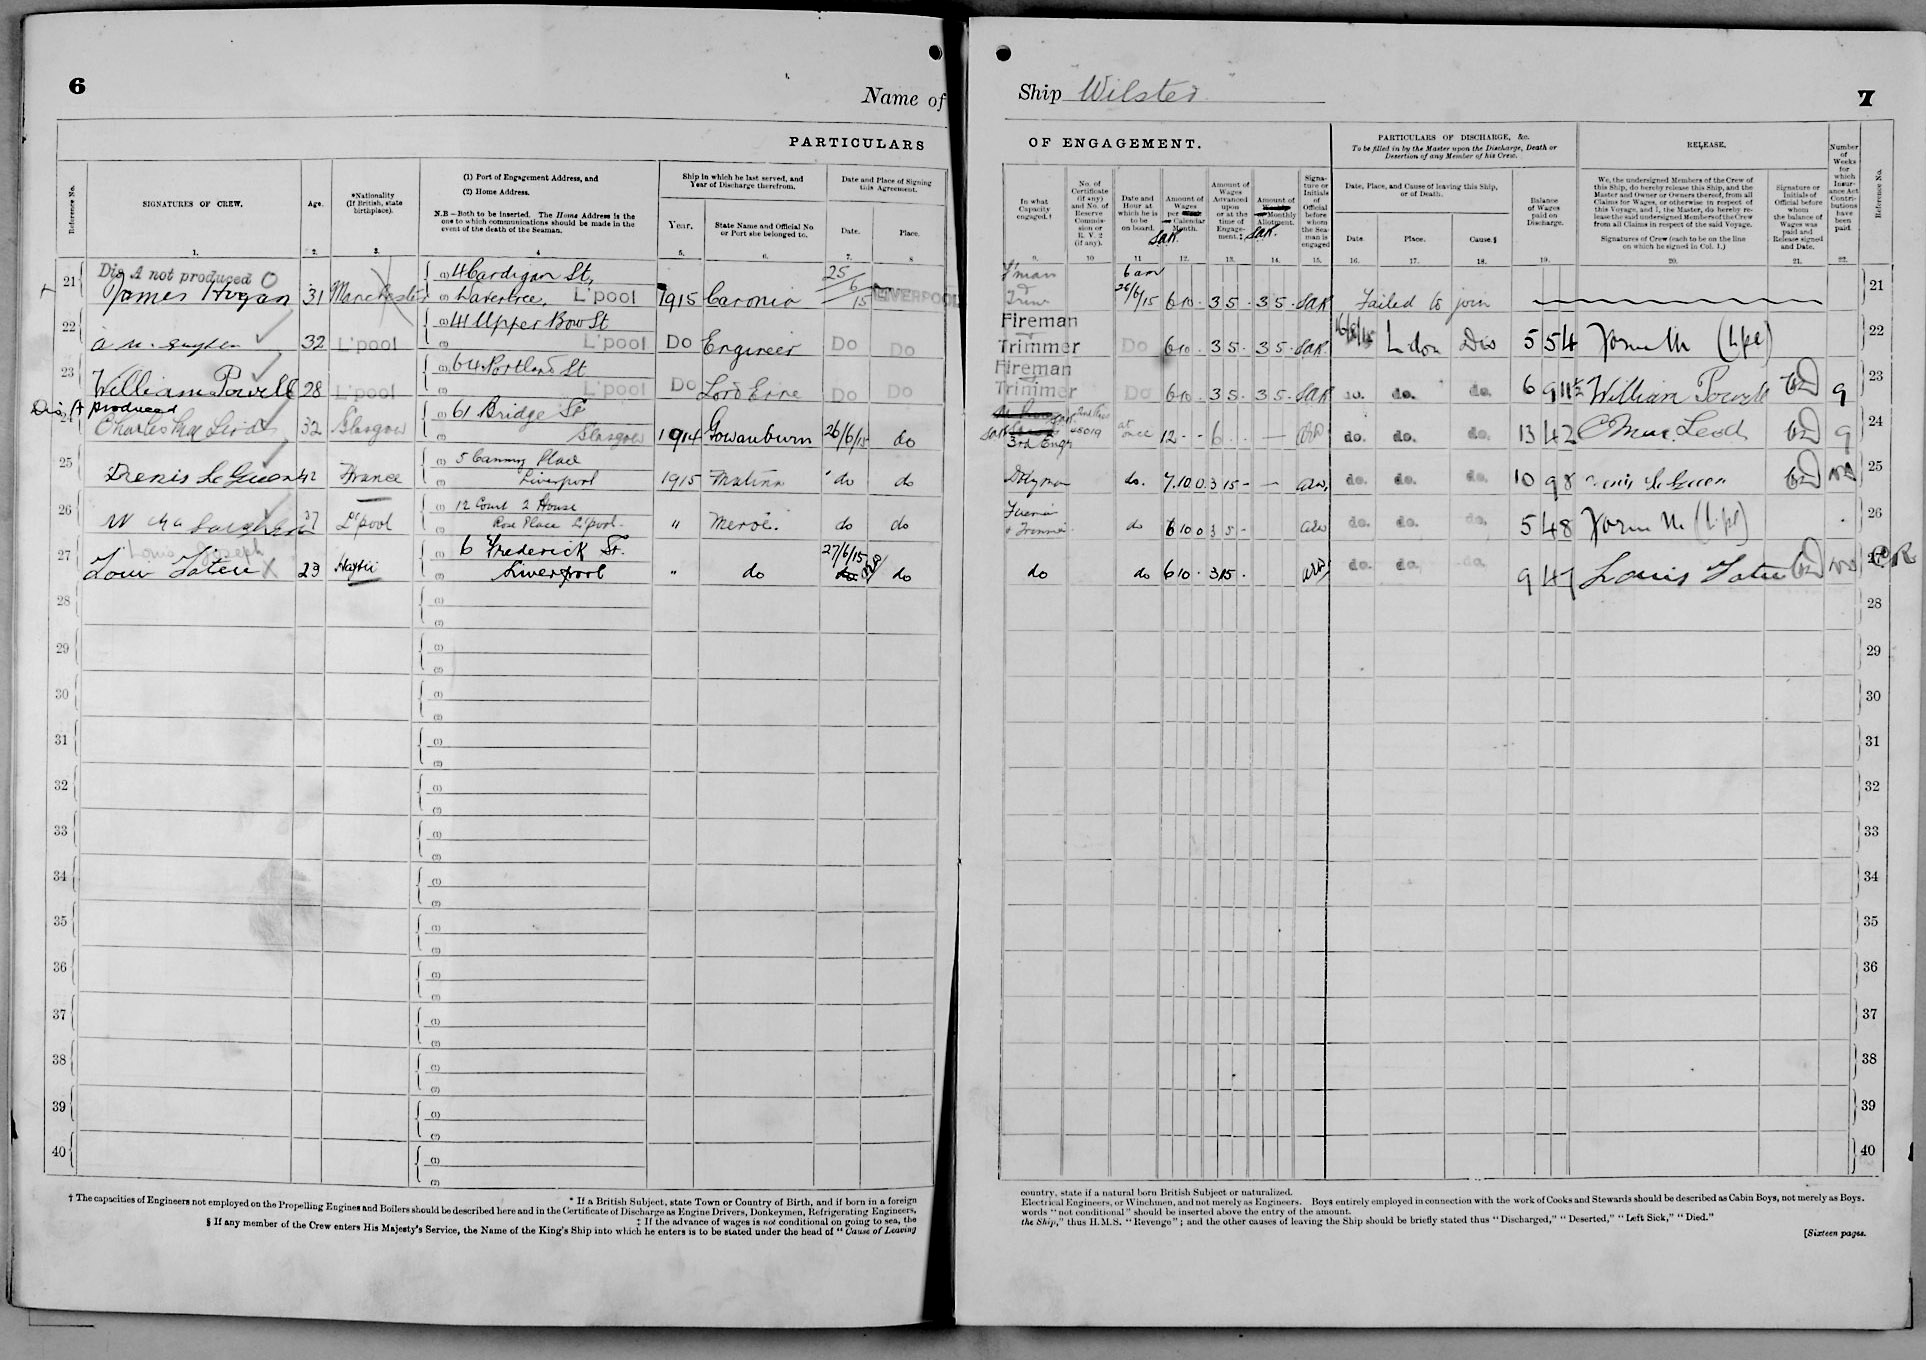 6
Name of
PARTICULARS
Reference No.
SIGNATURES OF CREW.
Age.
*Nationality
(If British, state
birthplace).
(1) Port of Engagement Address, and
(2) Home Address.
N.B—Both to be inserted. The Home Address is the
one to which communications should be made in the
event of the death of the Seaman.
Ship in which he last served, and
Year of Discharge therefrom.
Year.
State Name and Official No.
or Port she belonged to.
Date and Place of Signing
this Agreement.
Date.
Place.
1. 2. 3. 4 5. 6. 7. 8
Dis A not produced
21 James Hogan 31 Manchester (1) 4 Cardigan St, (2) Wavertree, L'pool 1915 Caronia 25/6/15 LIVERPOOL
22 32 L'pool (1) 41 Upper Bow St (2) L'pool Do Engineer Do Do
23 William Powell 28 L'pool (1) 64 Portland St (2) L'pool Do Do Do
Dis A produced
24 Charles Mac Leod 32 Glasgow (1) 61 Bridge St (2) Glasgow 1914 Gowanburn 26/6/15 do
25 Denis Le Guen 42 France (1) 5 Canning Place (2) Liverpool 1915 Matina do do
26 37 L'pool (1) 12 Court 2 House (2) Rose Place L'pool " Meroë. do do
Louis Joseph
27 Haytii (1) 6 Frederick St. (2) Liverpool " do 27/6/15 do
28 (1) (2)
29 (1) (2)
30 (1) (2)
31 (1) (2)
32 (1) (2)
33 (1) (2)
34 (1) (2)
35 (1) (2)
36 (1) (2)
37 (1) (2)
38 (1) (2)
39 (1) (2)
40 (1) (2)
* If a British Subject, state Town or Country of Birth, and if born in a foreign
† The capacities of Engineers not employed on the Propelling Engines and Boilers should be described here and in the Certificate of Discharge as Engine Drivers, Donkeymen, Refrigerating Engineers,
‡ If the advance of wages is not conditional on going to sea, the
§ If any member of the Crew enters His Majesty's Service, the Name of the King's Ship into which he enters is to be stated under the head of "Cause of Leaving
Ship "Wilster"
7
OF ENGAGEMENT.
PARTICULARS OF DISCHARGE, &c.
To be filled in by the Master upon the Discharge, Death or
Desertion of any Member of his Crew.
RELEASE.
In what
Capacity
engaged.†
No. of
Certificate
(if any)
and No. of
Reserve
Commis-
sion or
R.V. 2
(if any).
Date and
Hour at
which he is
to be
on board.
Amount of
Wages
per
Calendar
Month.
Amount of
Wages
Advanced
upon
or at the
time of
Engage-
ment.‡
Amount of
Monthly
Allotment.
Signa-
ture or
Initials
of
Official
before
whom
the Sea-
man is
engaged
Date, Place, and Cause of leaving this Ship,
or of Death.
Date.
Place.
Cause.§
Balance
of Wages
paid on
Discharge.
We, the undersigned Members of the Crew of
this Ship, do hereby release this Ship, and the
Master and Owner or Owners thereof, from all
Claims for Wages, or otherwise in respect of
this Voyage, and I, the Master, do hereby re-
lease the said undersigned Members of the Crew
from all Claims in respect of the said Voyage.
Signatures of Crew (each to be on the line
on which he signed in Col. 1.)
Signature or
Initials of
Official before
whom
the balance of
Wages was
paid and
Release signed
and Date.
Number
of
Weeks
for
which
Insur-
ance Act
Contri-
butions
have
been
paid.
Reference No.
9. 10 11 12. 13. 14. 15. 16. 17. 18. 19. 20. 21. 22.
F'man & Trim 6 am 26/6/15 6 10 - 3 5 - 3 5 - SAK Failed to join 21
Fireman & Trimmer Do 6 10 - 3 5 - 3 5 - SAK Dis 5 5 4 22
Fireman & Trimmer Do 6 10 - 3 5 - 3 5 - SAK do. do. do. 6 9 11½ William Powell 9 23
3rd Engr 45019 at once 12 - - 6 - - — do. do. do. 13 4 2 C Mac Leod 9 24
do. 7. 10 0 3 15 - — do. do. do. 10 9 8 25
do 6 10 0 3 5 - do. do. do. 5 4 8 26
do do 6 10 - 3 15 - do. do. do. 9 4 7 27
28
29
30
31
32
33
34
35
36
37
38
39
40
country, state if a natural born British Subject or naturalized.
Electrical Engineers, or Winchmen, and not merely as Engineers. Boys entirely employed in connection with the work of Cooks and Stewards should be described as Cabin Boys, not merely as Boys.
words "not conditional" should be inserted above the entry of the amount.
the Ship," thus H.M.S. "Revenge"; and the other causes of leaving the Ship should be briefly stated thus "Discharged," "Deserted," "Left Sick," "Died."
[Sixteen pages.